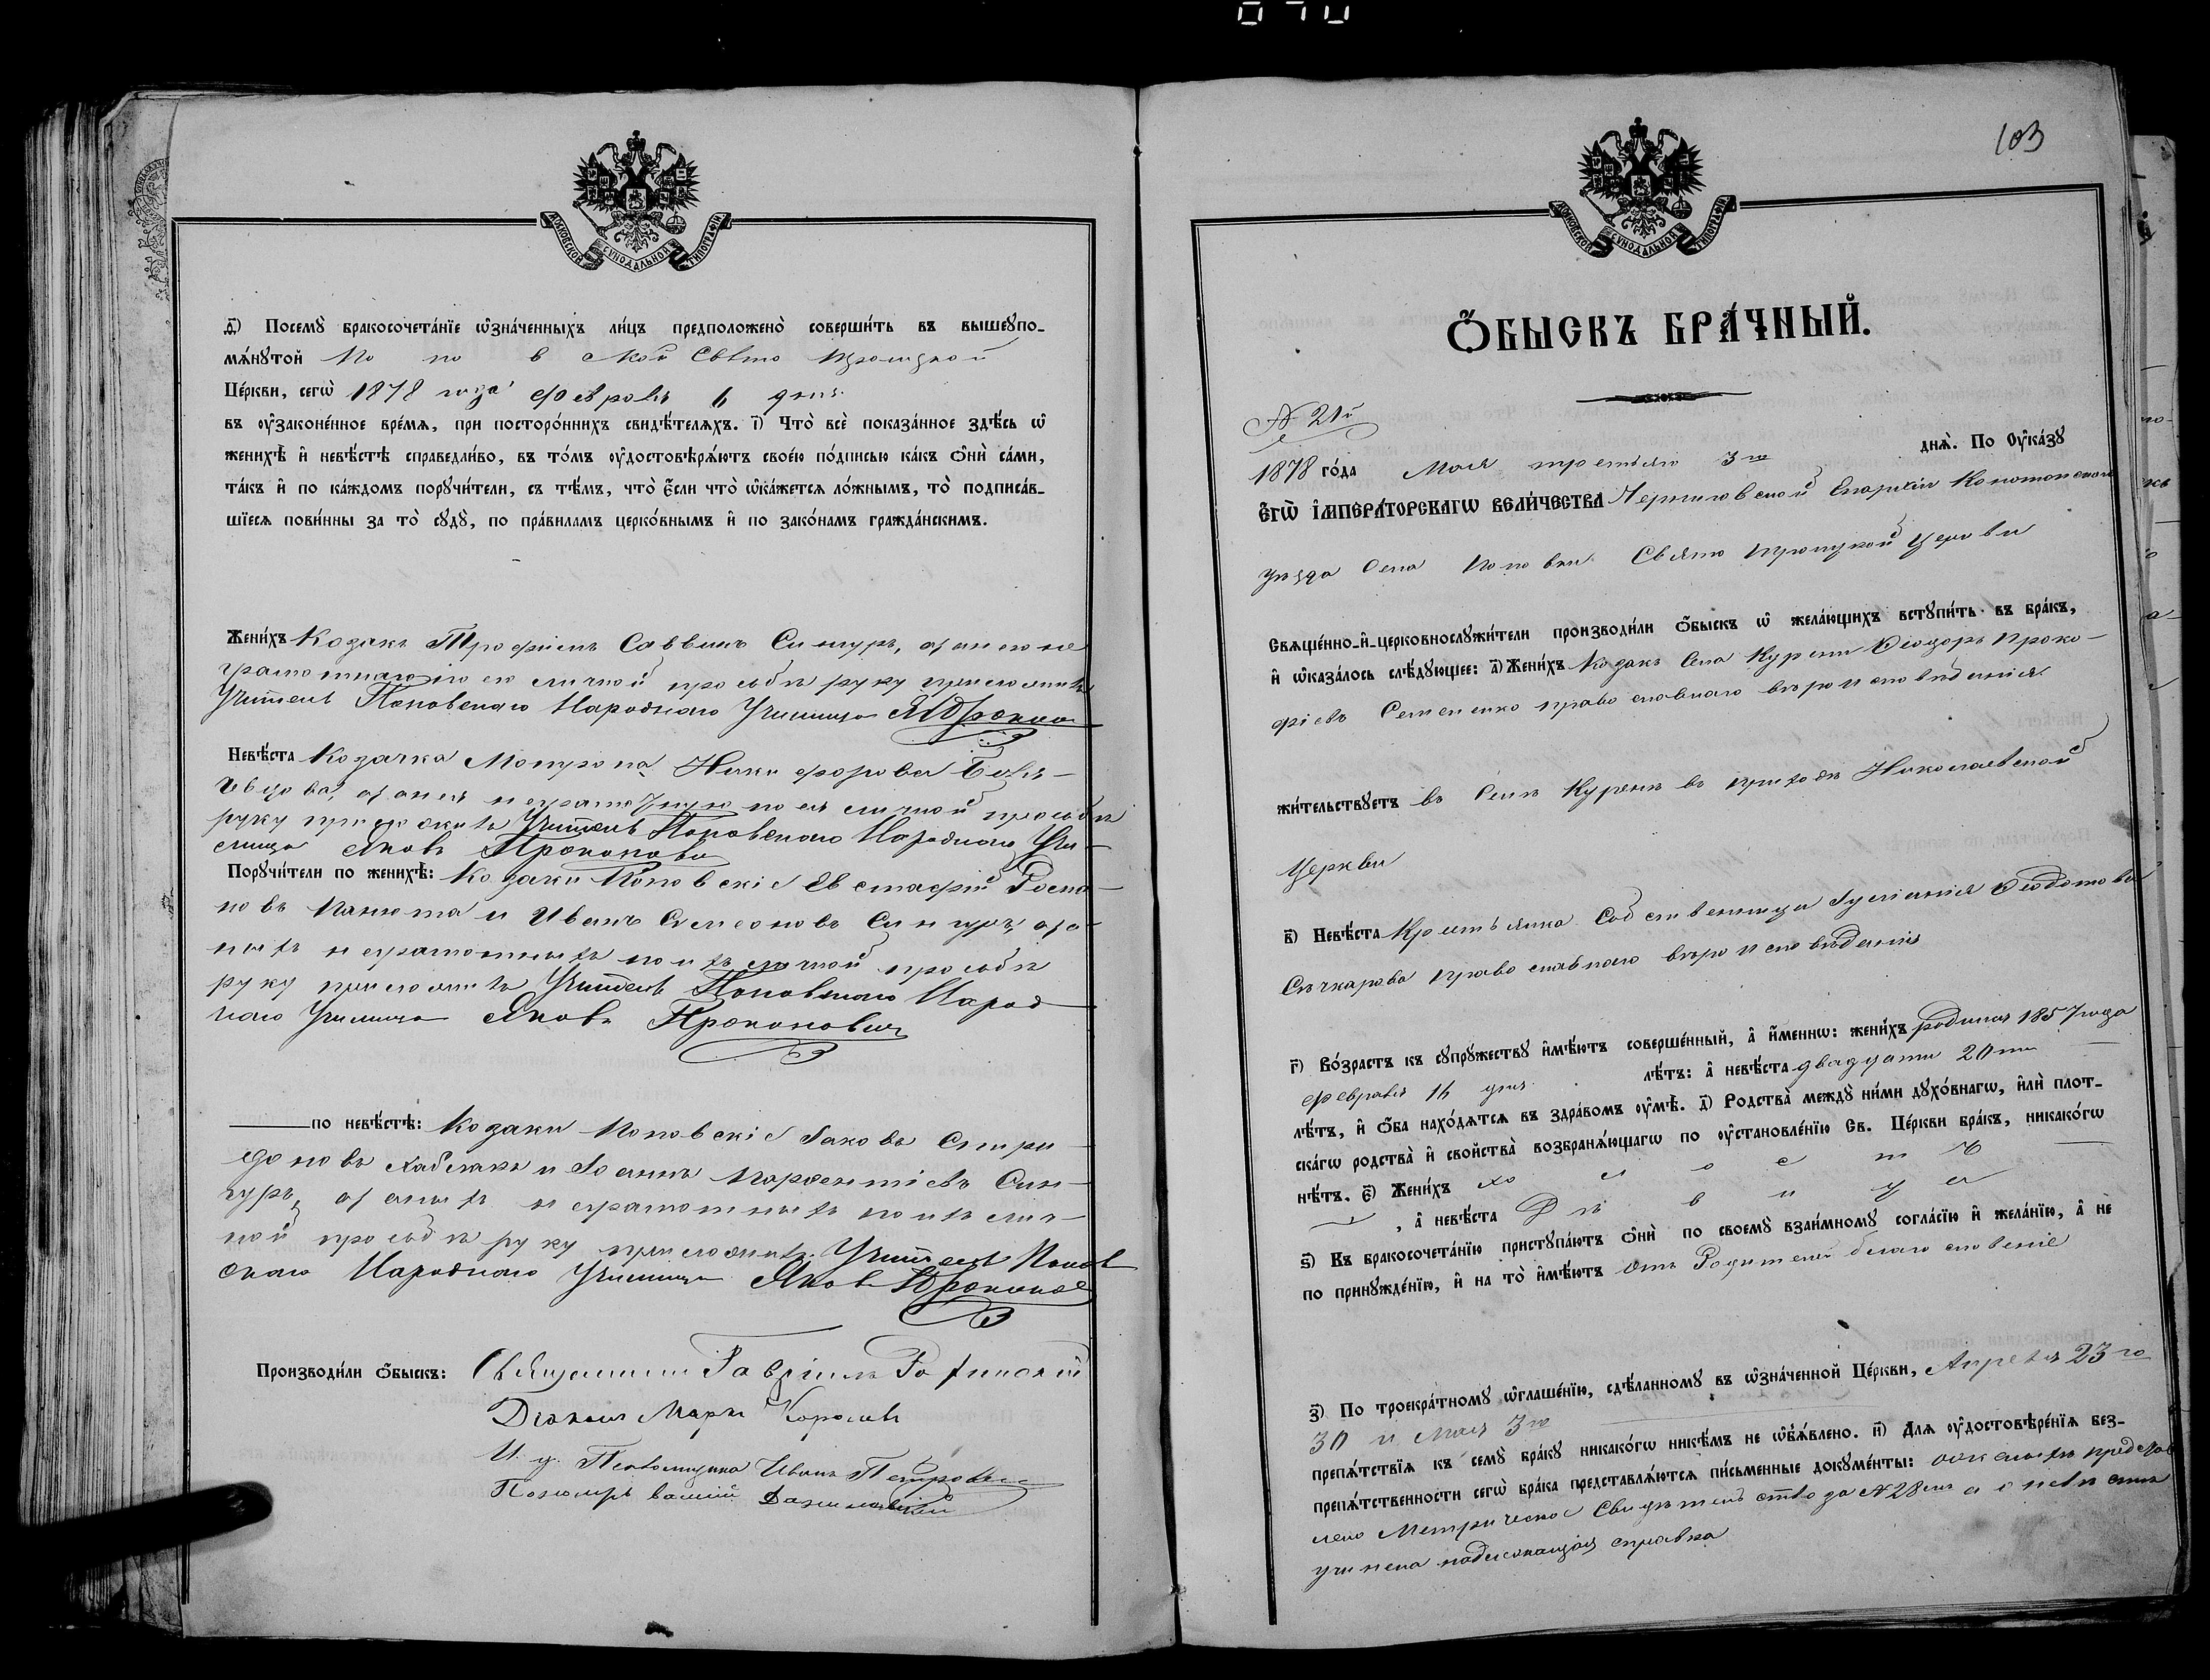 070
МОСКОВСКОЙ СѴНОДАЛЬНОЙ ТИПОГРАФІИ
д҃і) Посемꙋ̀ бракосочета́нїе ѡ҆зна́ченныхъ ли́цъ предположено̀ соверши́ть въ вышеꙋпо-
мѧ́нꙋтой По по в ской Свято Троицкой
Це́ркви, сегѡ̀ 1878 года Февраля 6 дня
въ ᲂу҆законе́нное вре́мѧ, при посторо́ннихъ свидѣ́телѧхъ. і҃) Что̀ всѐ показа́нное здѣ́сь ѡ҆
женихѣ̀ и҆ невѣ́стѣ справедли́во, въ то́мъ ᲂу҆достовѣрѧ́ютъ свое́ю по́дписью ка́къ ѻ҆нѝ са́ми,
та́къ и҆ по ка́ждомъ порꙋчи́тели, съ тѣ́мъ, что̀ є҆́сли что̀ ѡ҆ка́жетсѧ ло́жнымъ, то̀ подписа́в-
шїесѧ пови́нны за то̀ сꙋдꙋ̀, по пра́виламъ церко́внымъ и҆ по зако́намъ гражда́нскимъ.
Жени́хъ Козакъ Трофимъ Саввинъ Сингуръ, а за него не
грамотнаго по его личной прозьбѣ руку приложилъ
Учитель Поповскаго Народнаго Училища
Невѣ́ста Козачка Мотрона Никифорова
а за нея неграмотную по ея личной прозьбѣ
руку приложилъ Учитель Поповскаго Народнаго Учи-
лища Яковъ Прокоповъ
Порꙋчи́тели по женихѣ̀: Козаки Поповскіе Евстафій
новъ и Иванъ Симеоновъ Сингуръ, а за
нихъ неграмотныхъ по ихъ личной прозьбѣ
руку приложилъ Учитель Поповскаго Народ
наго Училища Яковъ Прокоповичъ
по невѣ́стѣ: Козаки Поповскіе Іаковъ Спири-
доновъ и Іоаннъ Парфентіевъ Син-
гуръ, а за нихъ неграмотныхъ по ихъ лич-
ной прозьбѣ руку приложилъ Учитель Попов
скаго Народнаго Училища Яковъ
Производи́ли ѻ҆́быскъ: Священникъ Гавріилъ
Діаконъ Маркъ Королевъ
И. д. Псаломщика Иванъ
Пономарь Василій Данилевскій
103
МОСКОВСКОЙ СѴНОДАЛЬНОЙ ТИПОГРАФІИ
Ѻ҆́БЫСКЪ БРА́ЧНЫЙ.
№ 21й
1878 го́да Мая третьяго 3го днѧ̀. По Оу҆ка́зꙋ
Є҆ГѠ̀ І҆МПЕРА́ТОРСКАГѠ ВЕЛИ́ЧЕСТВА Черниговской Епархіи Конотопскаго
уѣзда Села Поповки Свято Троицкой Церкви
Свѧще́нно-и҆-церковнослꙋжи́тели производи́ли ѻ҆́быскъ ѡ҆ жела́ющихъ встꙋпи́ть въ бра́къ,
и҆ ѡ҆каза́лось слѣ́дꙋющее: а҃) Жени́хъ Козакъ Села Куреня Ѳеодоръ Проко-
фіевъ Семененко православнаго вѣроисповѣданія
жи́тельствꙋетъ въ Селѣ Куренѣ въ приходѣ Николаевской
Церкви
в҃) Невѣ́ста Крестьянка Собственница Іуліанія Ѳеодотова
Сѣчкарева православнаго вѣроисповѣданія
г҃) Во́зрастъ къ сꙋпрꙋ́жествꙋ и҆мѣ́ютъ соверше́нный, а҆ и҆́меннѡ: жени́хъ родился 1857 года
февраля 16 дня лѣ́тъ: а҆ невѣ́ста двадцати 20ти
лѣ́тъ, и҆ ѻ҆́ба нахо́дѧтсѧ въ здра́вомъ ᲂу҆мѣ̀. д҃) Родства̀ междꙋ̀ ни́ми дꙋхо́внагѡ, и҆лѝ плот-
ска́гѡ родства̀ и҆ свойства̀ возбранѧ́ющагѡ по ᲂу҆становле́нїю Св. Це́ркви бра́къ, никако́гѡ
нѣ́тъ. є҃) Жени́хъ холостъ
, а҆ невѣ́ста Дѣвица
ѕ҃) Къ бракосочета́нїю пристꙋпа́ютъ ѻ҆нѝ по своемꙋ̀ взаи́мномꙋ согла́сїю и҆ жела́нїю, а҆ не
по принꙋжде́нїю, и҆ на то̀ и҆мѣ́ютъ отъ Родителей благословеніе
з҃) По троекра́тномꙋ ѡ҆глаше́нїю, сдѣ́ланномꙋ въ ѡ҆зна́ченной Це́ркви, Апреля 23го
30 и Мая 3го
препѧ́тствїѧ къ семꙋ̀ бра́кꙋ никако́гѡ никѣ́мъ не ѡ҆б̾ѧ́влено. и҃) Длѧ ᲂу҆достовѣре́нїѧ без-
препѧ́тственности сегѡ̀ бра́ка представлѧ́ютсѧ пи́сьменные докꙋме́нты: о женихѣ представ
лено Метрическое Свидѣтельство за № 28мъ а о невѣстѣ
учинена надлежащая справка